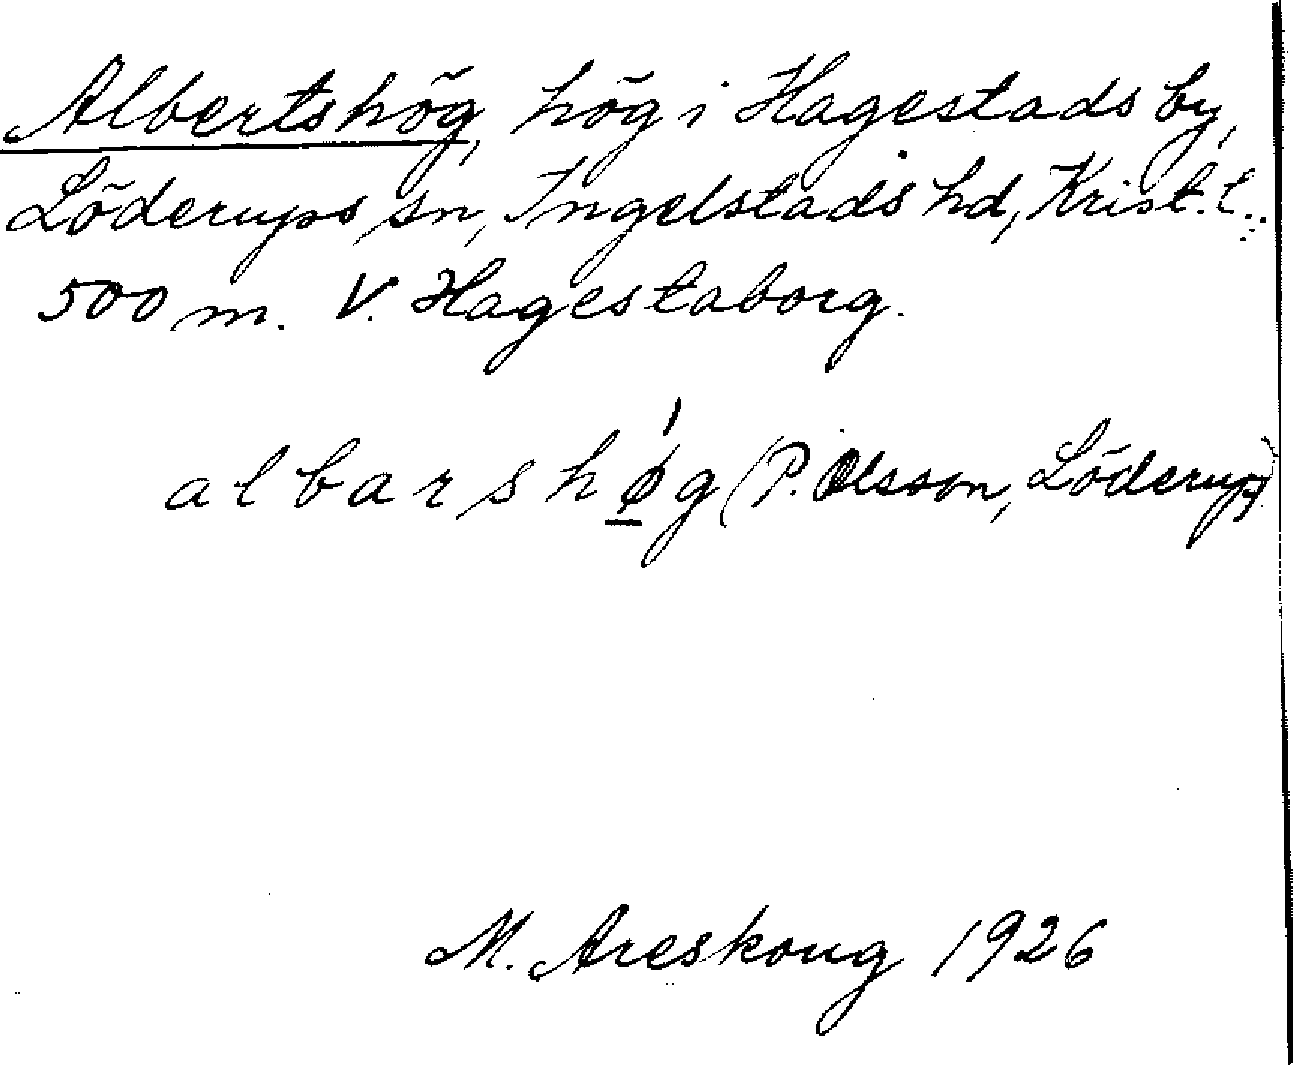 Albertshög, hög i Hagestads by,
Löderups sn, Ingelstads hd, Krist. l.
500 m. V. Hagestaborg.
albarshǿ̲g (P. Olsson, Löderup)
M. Areskoug 1926